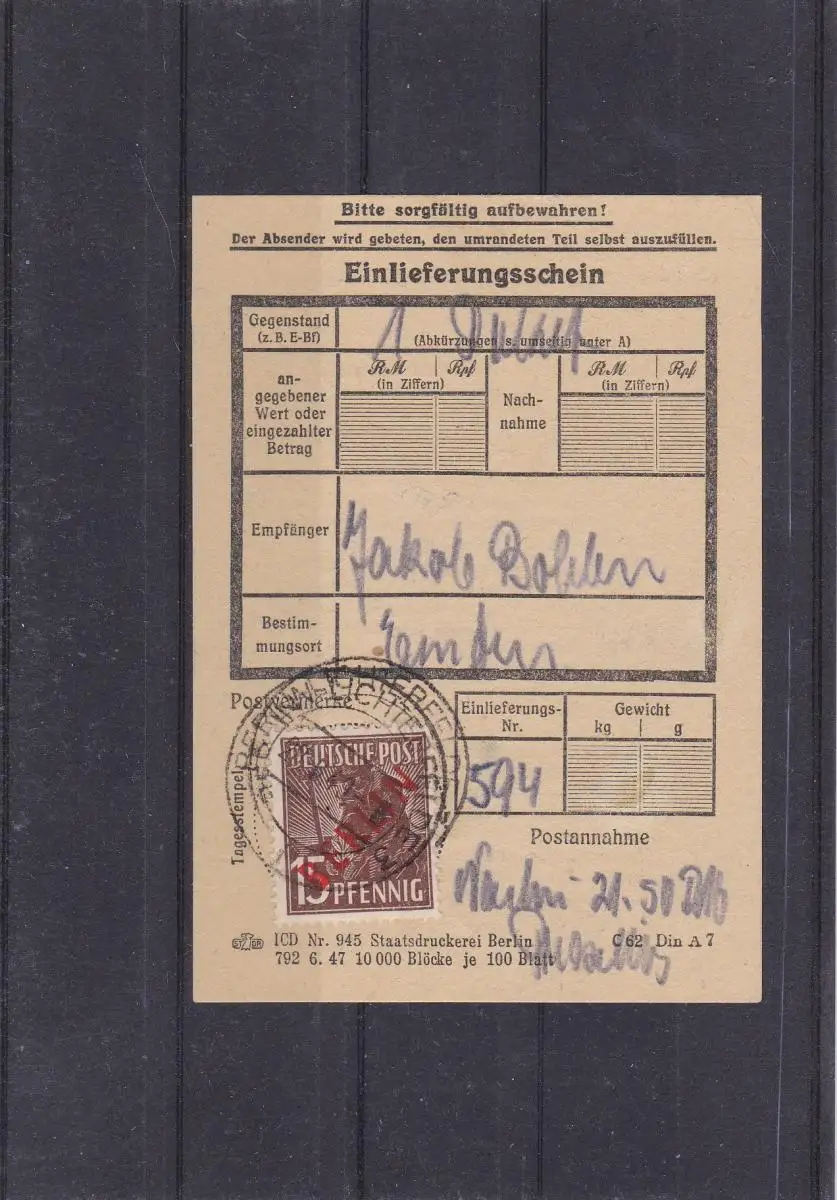 Bitte sorgfältig aufbewahren!
Der Absender wird gebeten, den umrandeten Teil selbst auszufüllen.
Einlieferungsschein
Gegenstand
(z. B. E-Bf)
1
(Abkürzungen s. umseitig unter A)
an-
gegebener
Wert oder
eingezahlter
Betrag
RM Rpf
(in Ziffern)
Nach-
nahme
RM Rpf
(in Ziffern)
Empfänger
Jakob Bohlen
Bestim-
mungsort
Emden
Postvermerke
Einlieferungs-
Nr.
594
Gewicht
kg g
Tagesstempel
BERLIN-LICHTERFELDE
DEUTSCHE POST
BERLIN
15 PFENNIG
Postannahme
21.50
ICD Nr. 945 Staatsdruckerei Berlin C 62 Din A 7
792 6. 47 10 000 Blöcke je 100 Blatt